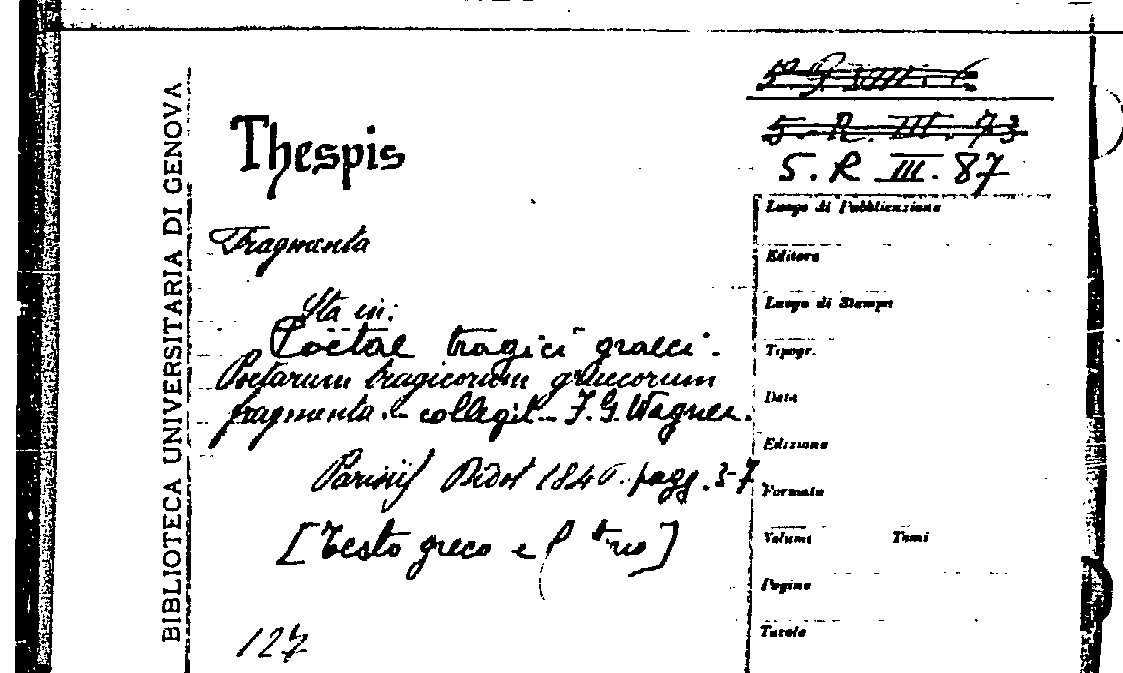 BIBLIOTECA UNIVERSITARIA DI GENOVA
5. R. III. 73
5. R III. 87
Thespis
Fragmenta
Sta in:
Poetae tragici graeci.
Poetarum tragicorum graecorum
fragmenta .. collegit .. F. G. Wagner.
Parisiis Didot 1846. pagg. 3-7
[Testo greco e
127
Luogo di Pubblicazione
Editore
Luogo di Stampa
Tipogr.
Data
Edizione
Formato
Volumi Tomi
Pagine
Tavole